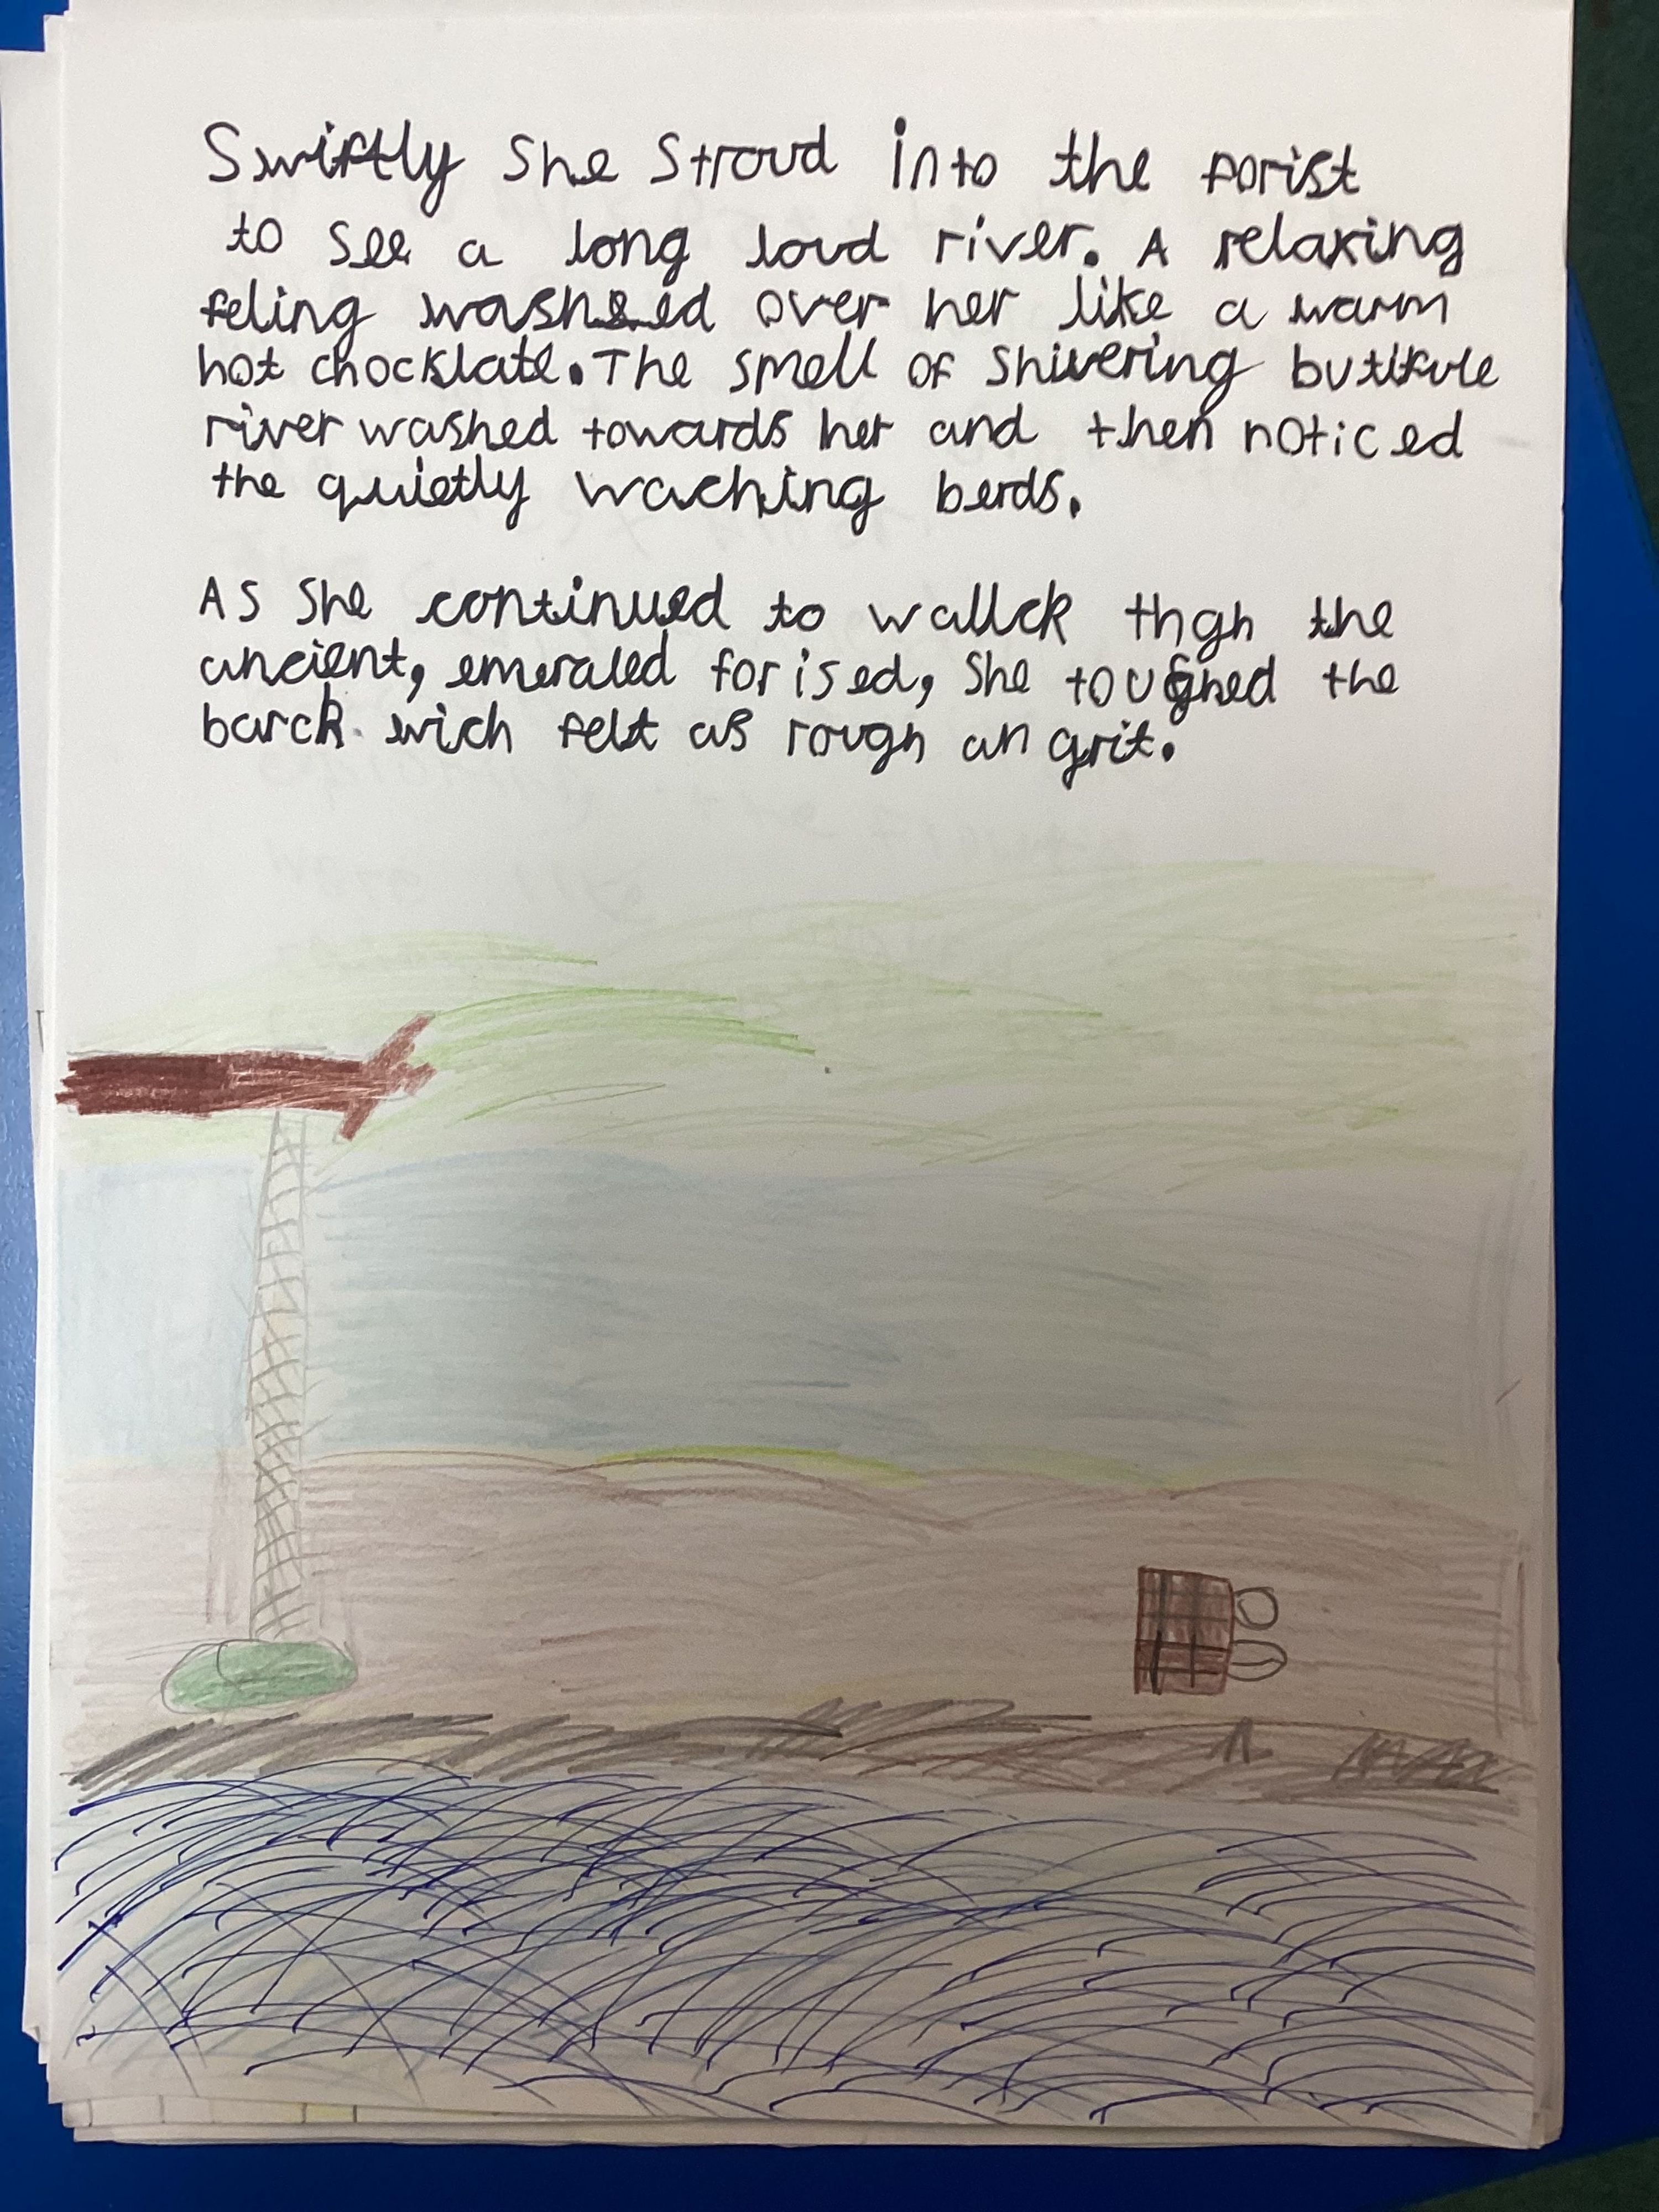 Swiftly She Stroud into the forist
to See a long loud river. A relaxing
feling washed over her like a warm
hot chocklate. The smell of Shivering butifule
river washed towards her and then noticed
the quietly waching berds.
As She continued to wallck thgh the
ancient, emeraled forised, She toughed the
barck wich felt as rough an grit.